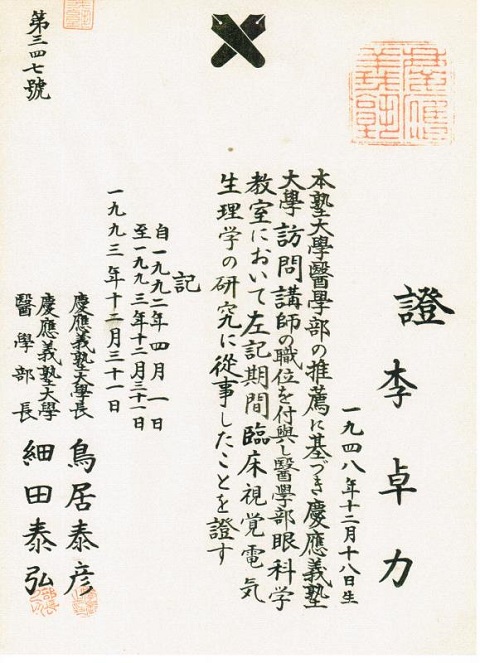 證
李卓力
一九四八年十二月十八日生
本塾大學醫學部の推薦に基づき慶應義塾
大學訪問講師の職位を付與し醫學部眼科学
教室において左記期間臨床視覚電気
生理学の研究に從事したことを證す
記
自一九九二年四月一日
至一九九三年十二月三十一日
一九九三年十二月三十一日
慶應義塾大學長 鳥居泰彦
慶應義塾大學
醫學部長 細田泰弘
第三四七號